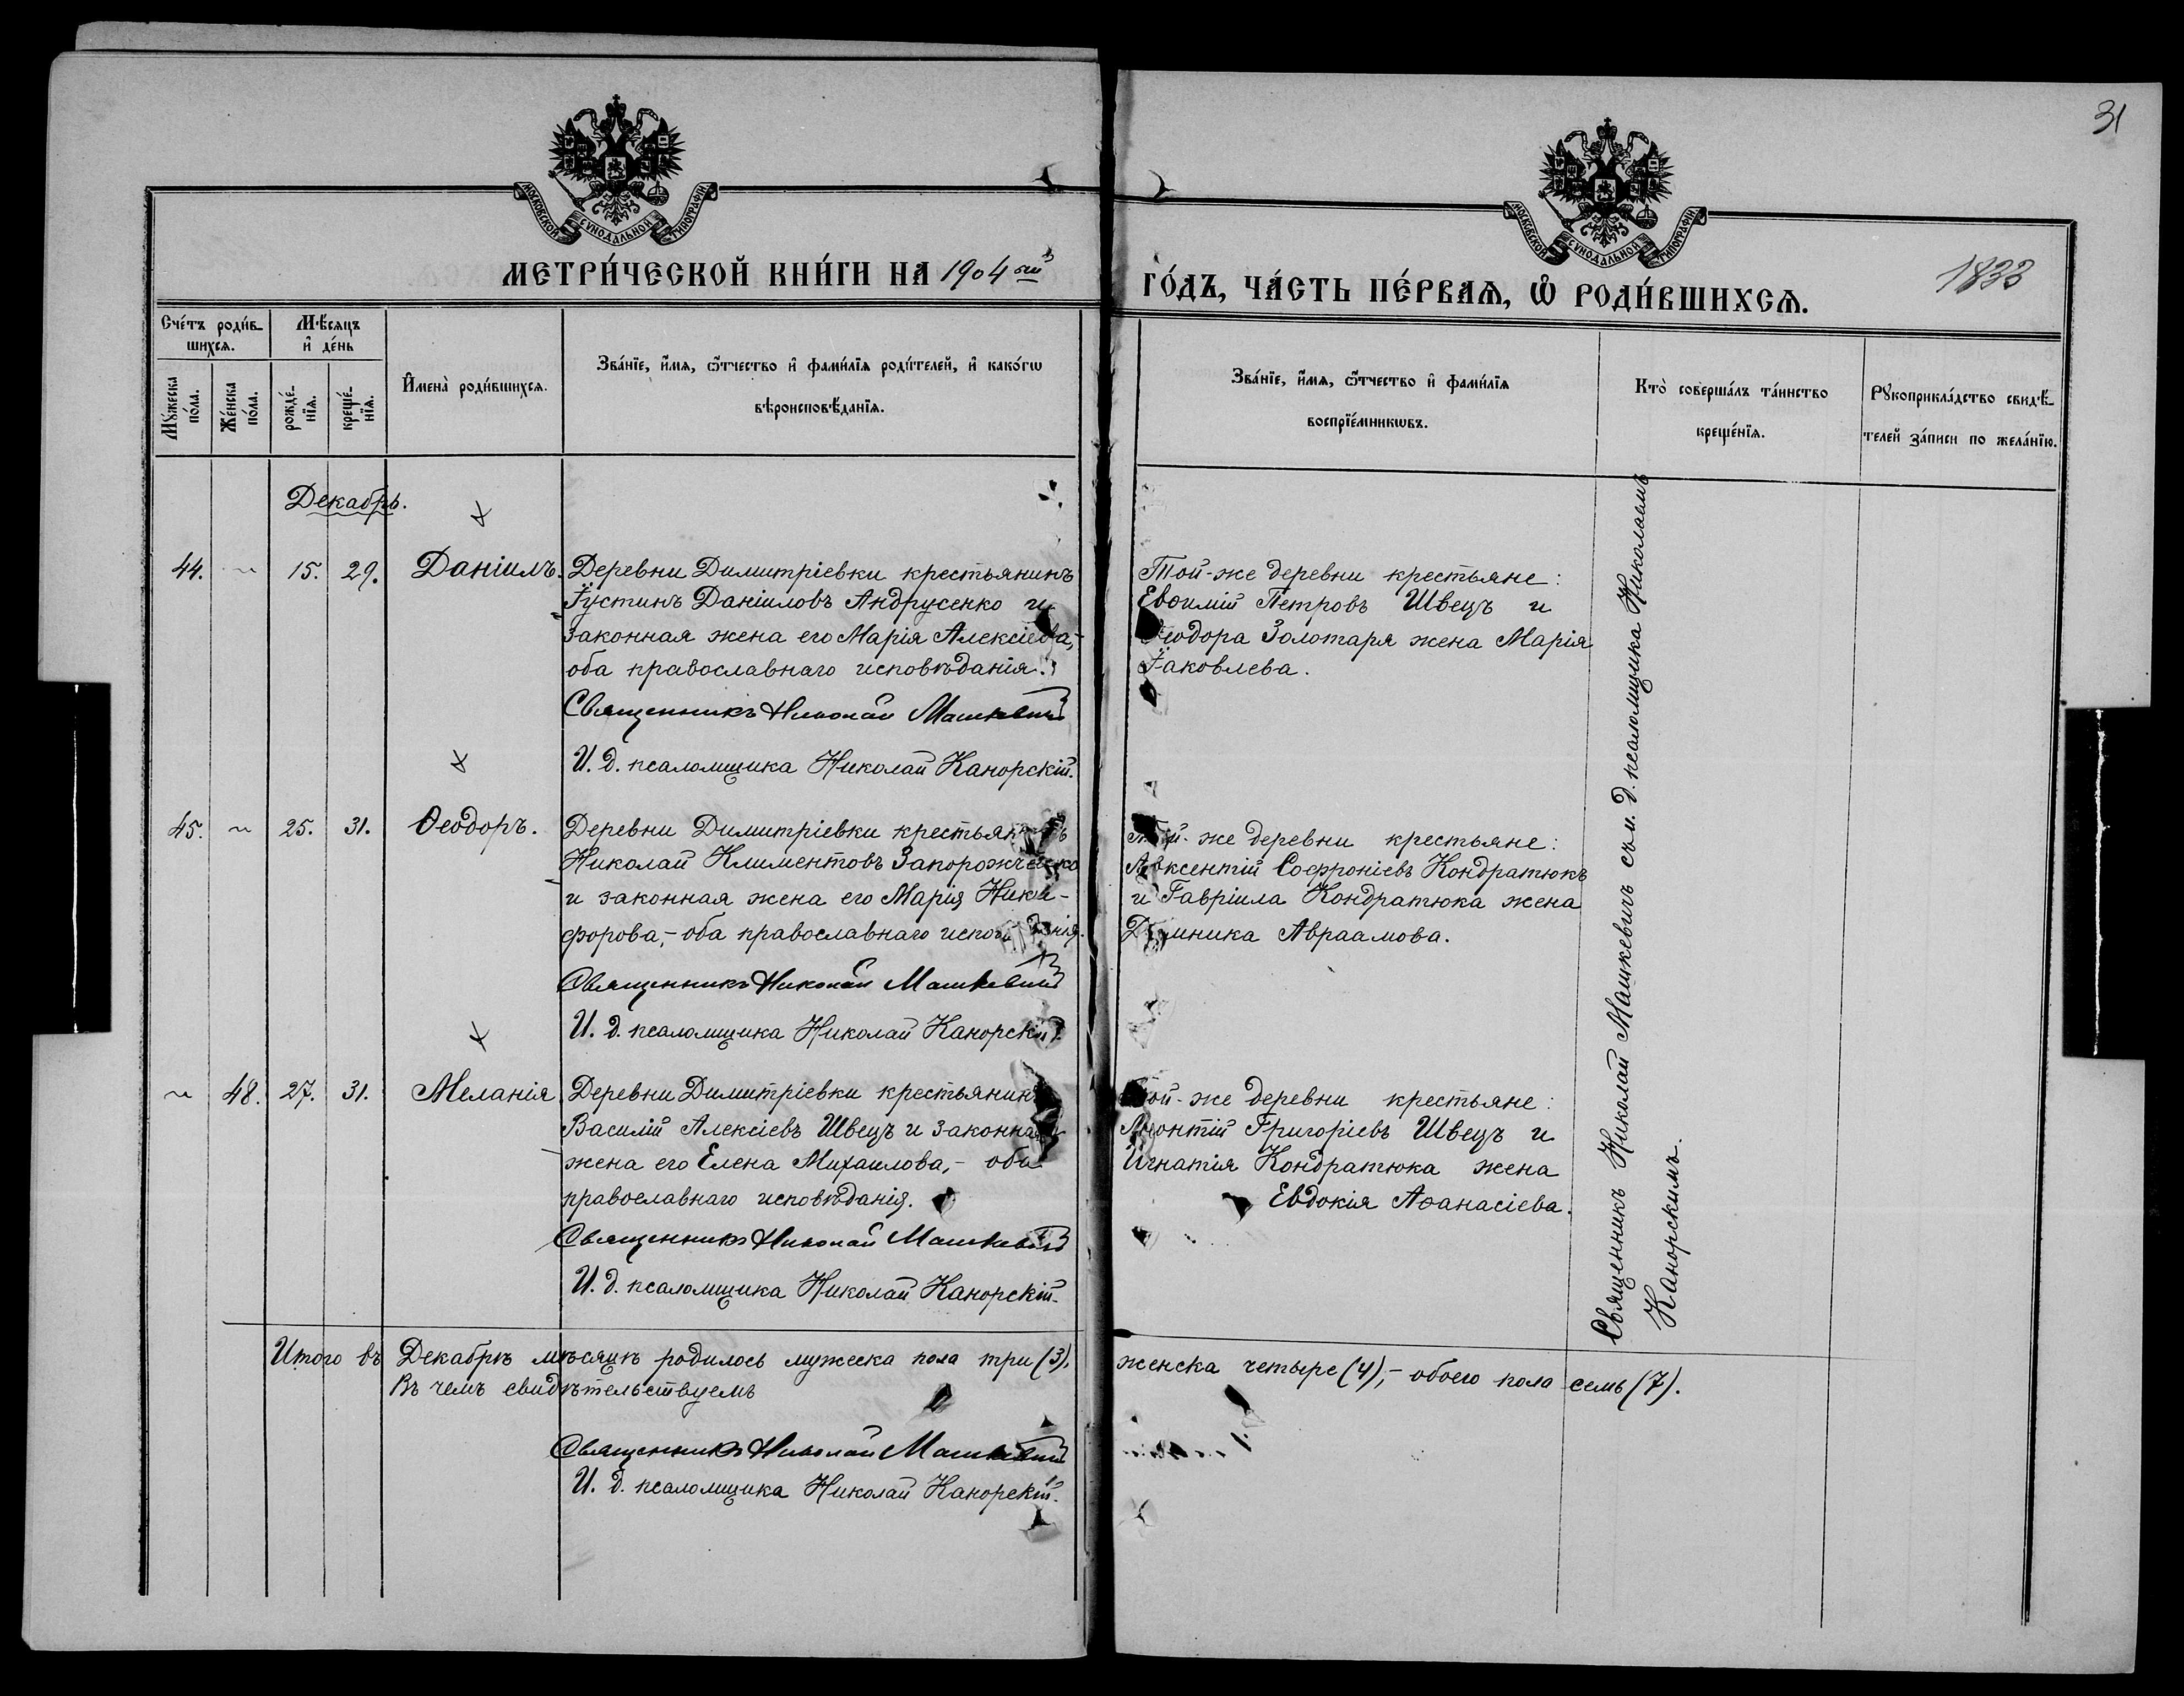 31
МОСКОВСКОЙ СѴНОДАЛЬНОЙ ТИПОГРАФІИ
МОСКОВСКОЙ СѴНОДАЛЬНОЙ ТИПОГРАФІИ
МЕТРИ́ЧЕСКОЙ КНИ́ГИ НА 1904ый
ГО́ДЪ, ЧА́СТЬ ПЕ́РВАѦ, Ѽ РОДИ́ВШИХСѦ.
1833
Сче́тъ роди́в-
шихсѧ.
Мꙋжеска
по́ла.
Же́нска
по́ла.
Мѣ́сѧцъ
и҆ де́нь
рожде́-
нїѧ.
креще́-
нїѧ.
И҆мена̀ роди́вшихсѧ.
Зва́нїе, и҆́мѧ, ѻ҆́тчество и҆ фами́лїѧ роди́телей, и҆ како́гѡ
вѣроисповѣ́данїѧ.
Зва́нїе, и҆́мѧ, ѻ҆́тчество и҆ фами́лїѧ
воспрїе́мникѡвъ.
Кто̀ соверша́лъ та́инство
креще́нїѧ.
Рꙋкоприкла́дство свидѣ́-
телей за́писи по жела́нїю.
Декабрь.
44. ~ 15. 29. Даніилъ.
Деревни Димитріевки крестьянинъ
Іустинъ Даніиловъ Андрусенко и
законная жена его Марія Алексіева,-
оба православнаго исповѣданія.
Священникъ Николай Машкевичъ
И. д. псаломщика Николай Канорскій.
Той-же деревни крестьяне:
Евѳимій Петровъ Швецъ и
Ѳеодора Золотаря жена Марія
Іаковлева.
45. ~ 25. 31. Ѳеодоръ.
Деревни Димитріевки крестьянинъ
Николай Климентовъ Запорожченко
и законная жена его Марія Ники-
форова,- оба православнаго исповѣданія.
Священникъ Николай Машкевичъ
И. д. псаломщика Николай Канорскій.
Той-же деревни крестьяне:
Авксентій Софроніевъ Кондратюкъ
и Гавріила Кондратюка жена
Домника Авраамова.
~ 48. 27. 31. Меланія
Деревни Димитріевки крестьянинъ
Василій Алексіевъ Швецъ и законная
жена его Елена Михаилова,- оба
православнаго исповѣданія.
Священникъ Николай Машкевичъ
И. д. псаломщика Николай Канорскій.
Той-же деревни крестьяне:
Леонтій Григоріевъ Швецъ и
Игнатія Кондратюка жена
Евдокія Аѳанасіева.
Священникъ Николай Машкевичъ съ и. д. псаломщика Николаемъ
Канорскимъ.
Итого въ Декабрѣ мѣсяцѣ родилось мужеска пола три (3),
женска четыре (4),- обоего пола семь (7).
Въ чемъ свидѣтельствуемъ
Священникъ Николай Машкевичъ
И. д. псаломщика Николай Канорскій.